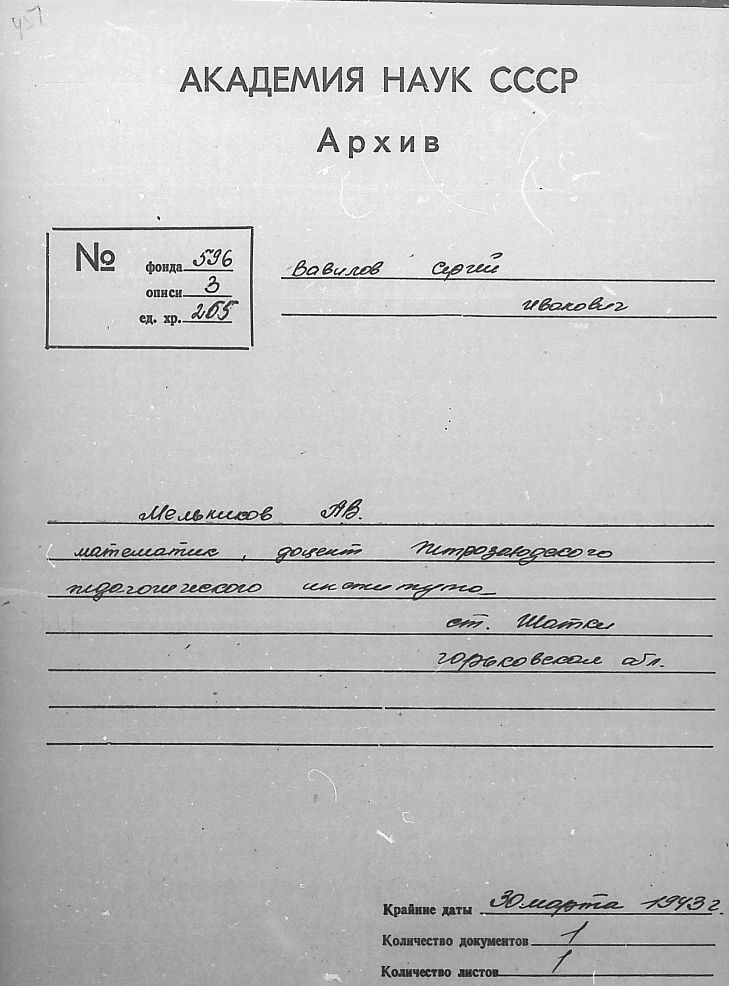 457
АКАДЕМИЯ НАУК СССР
Архив
№
фонда 596
описи 3
ед. хр. 265
Вавилов Сергей
Иванович
Мельников А.В.
математик, доцент Петрозаводского
педагогического института
ст. Шатки
Горьковской обл.
Крайние даты 30 марта 1943 г.
Количество документов 1
Количество листов 1